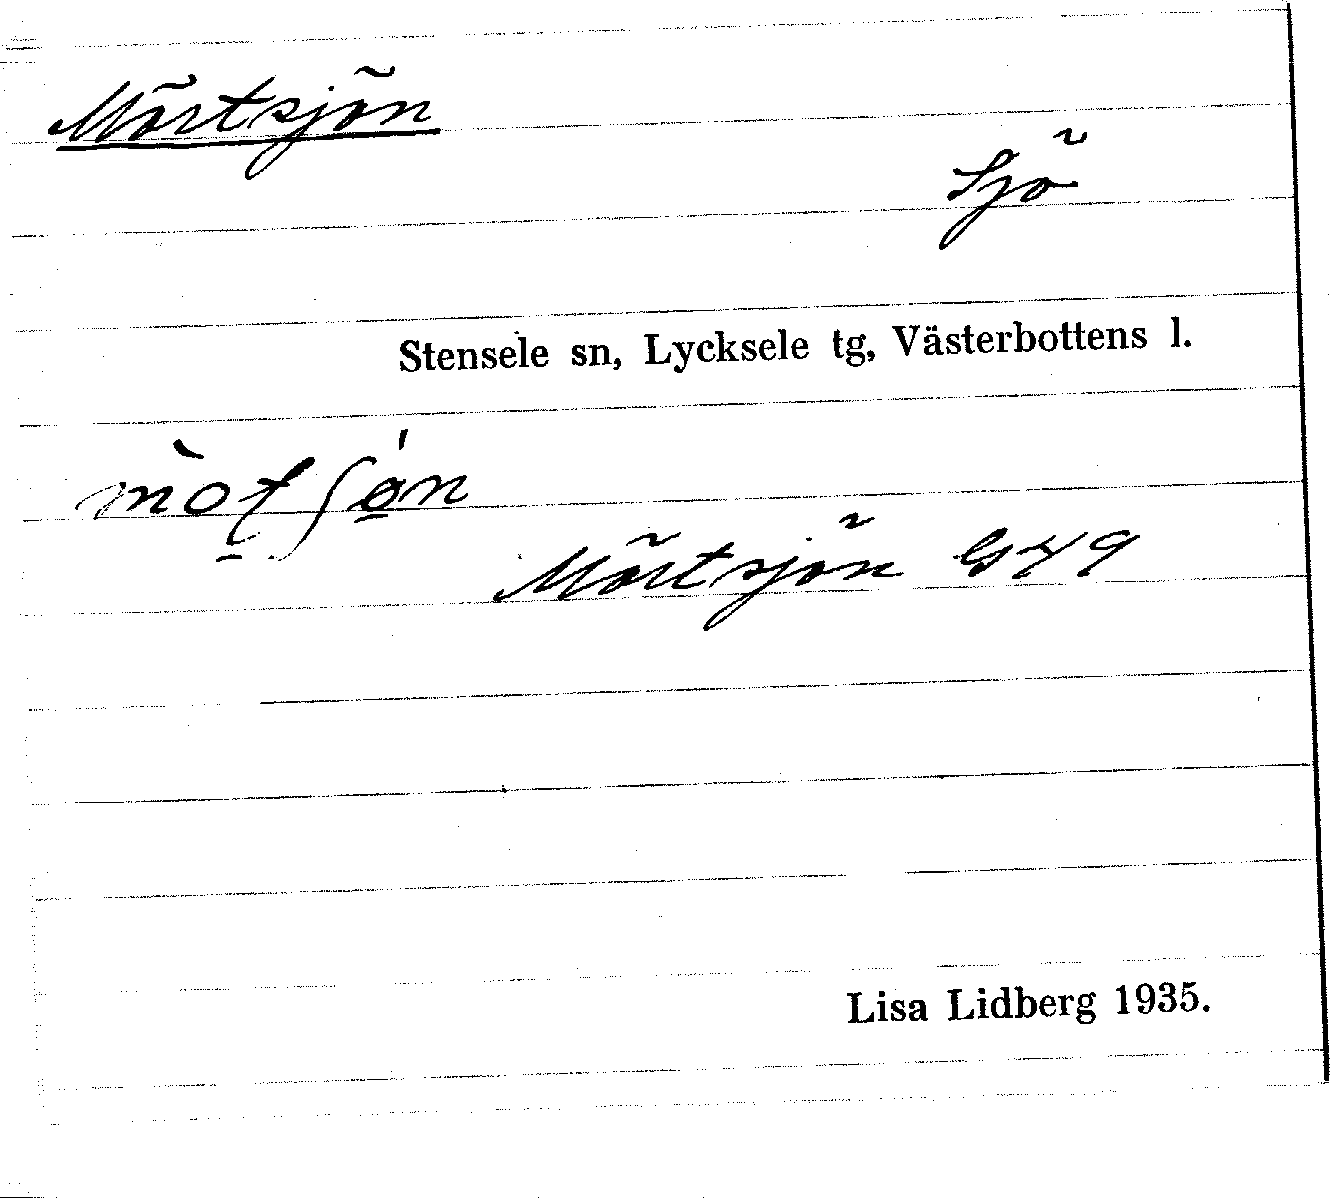 Mörtsjön
Sjö
Stensele sn, Lycksele tg, Västerbottens l.
Mörtsjön G49
Lisa Lidberg 1935.